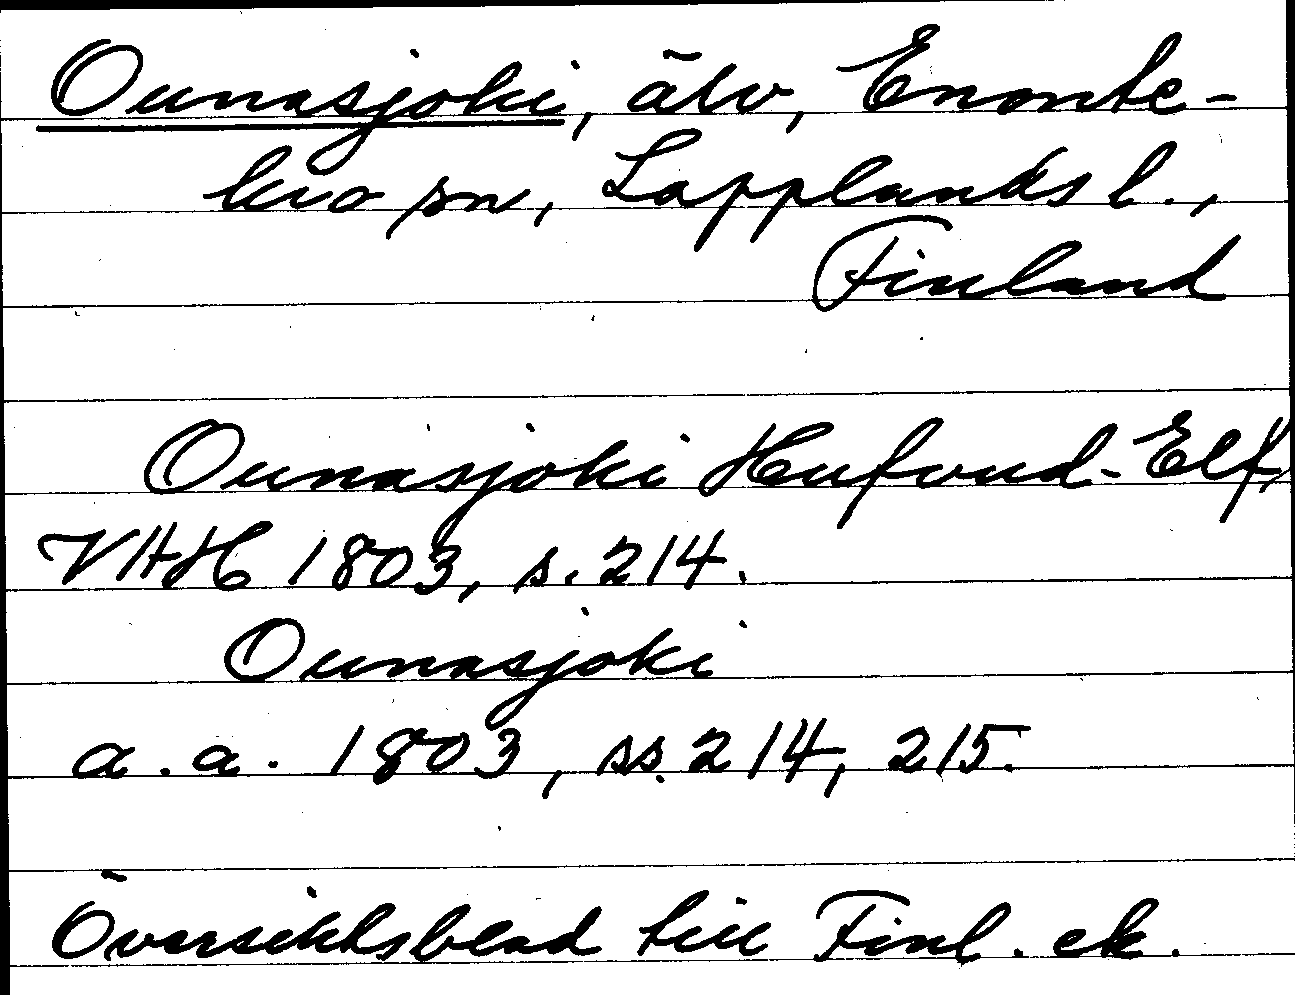 Ounasjoki, älv, Enonte-
kio sn, Lapplands l.,
Finland
Ounasjoki Hufvud-Elf,
VHH 1803, s. 214.
Ounasjoki
a. a. 1803, ss. 214, 215.
Översiktsblad till Finl. ek.